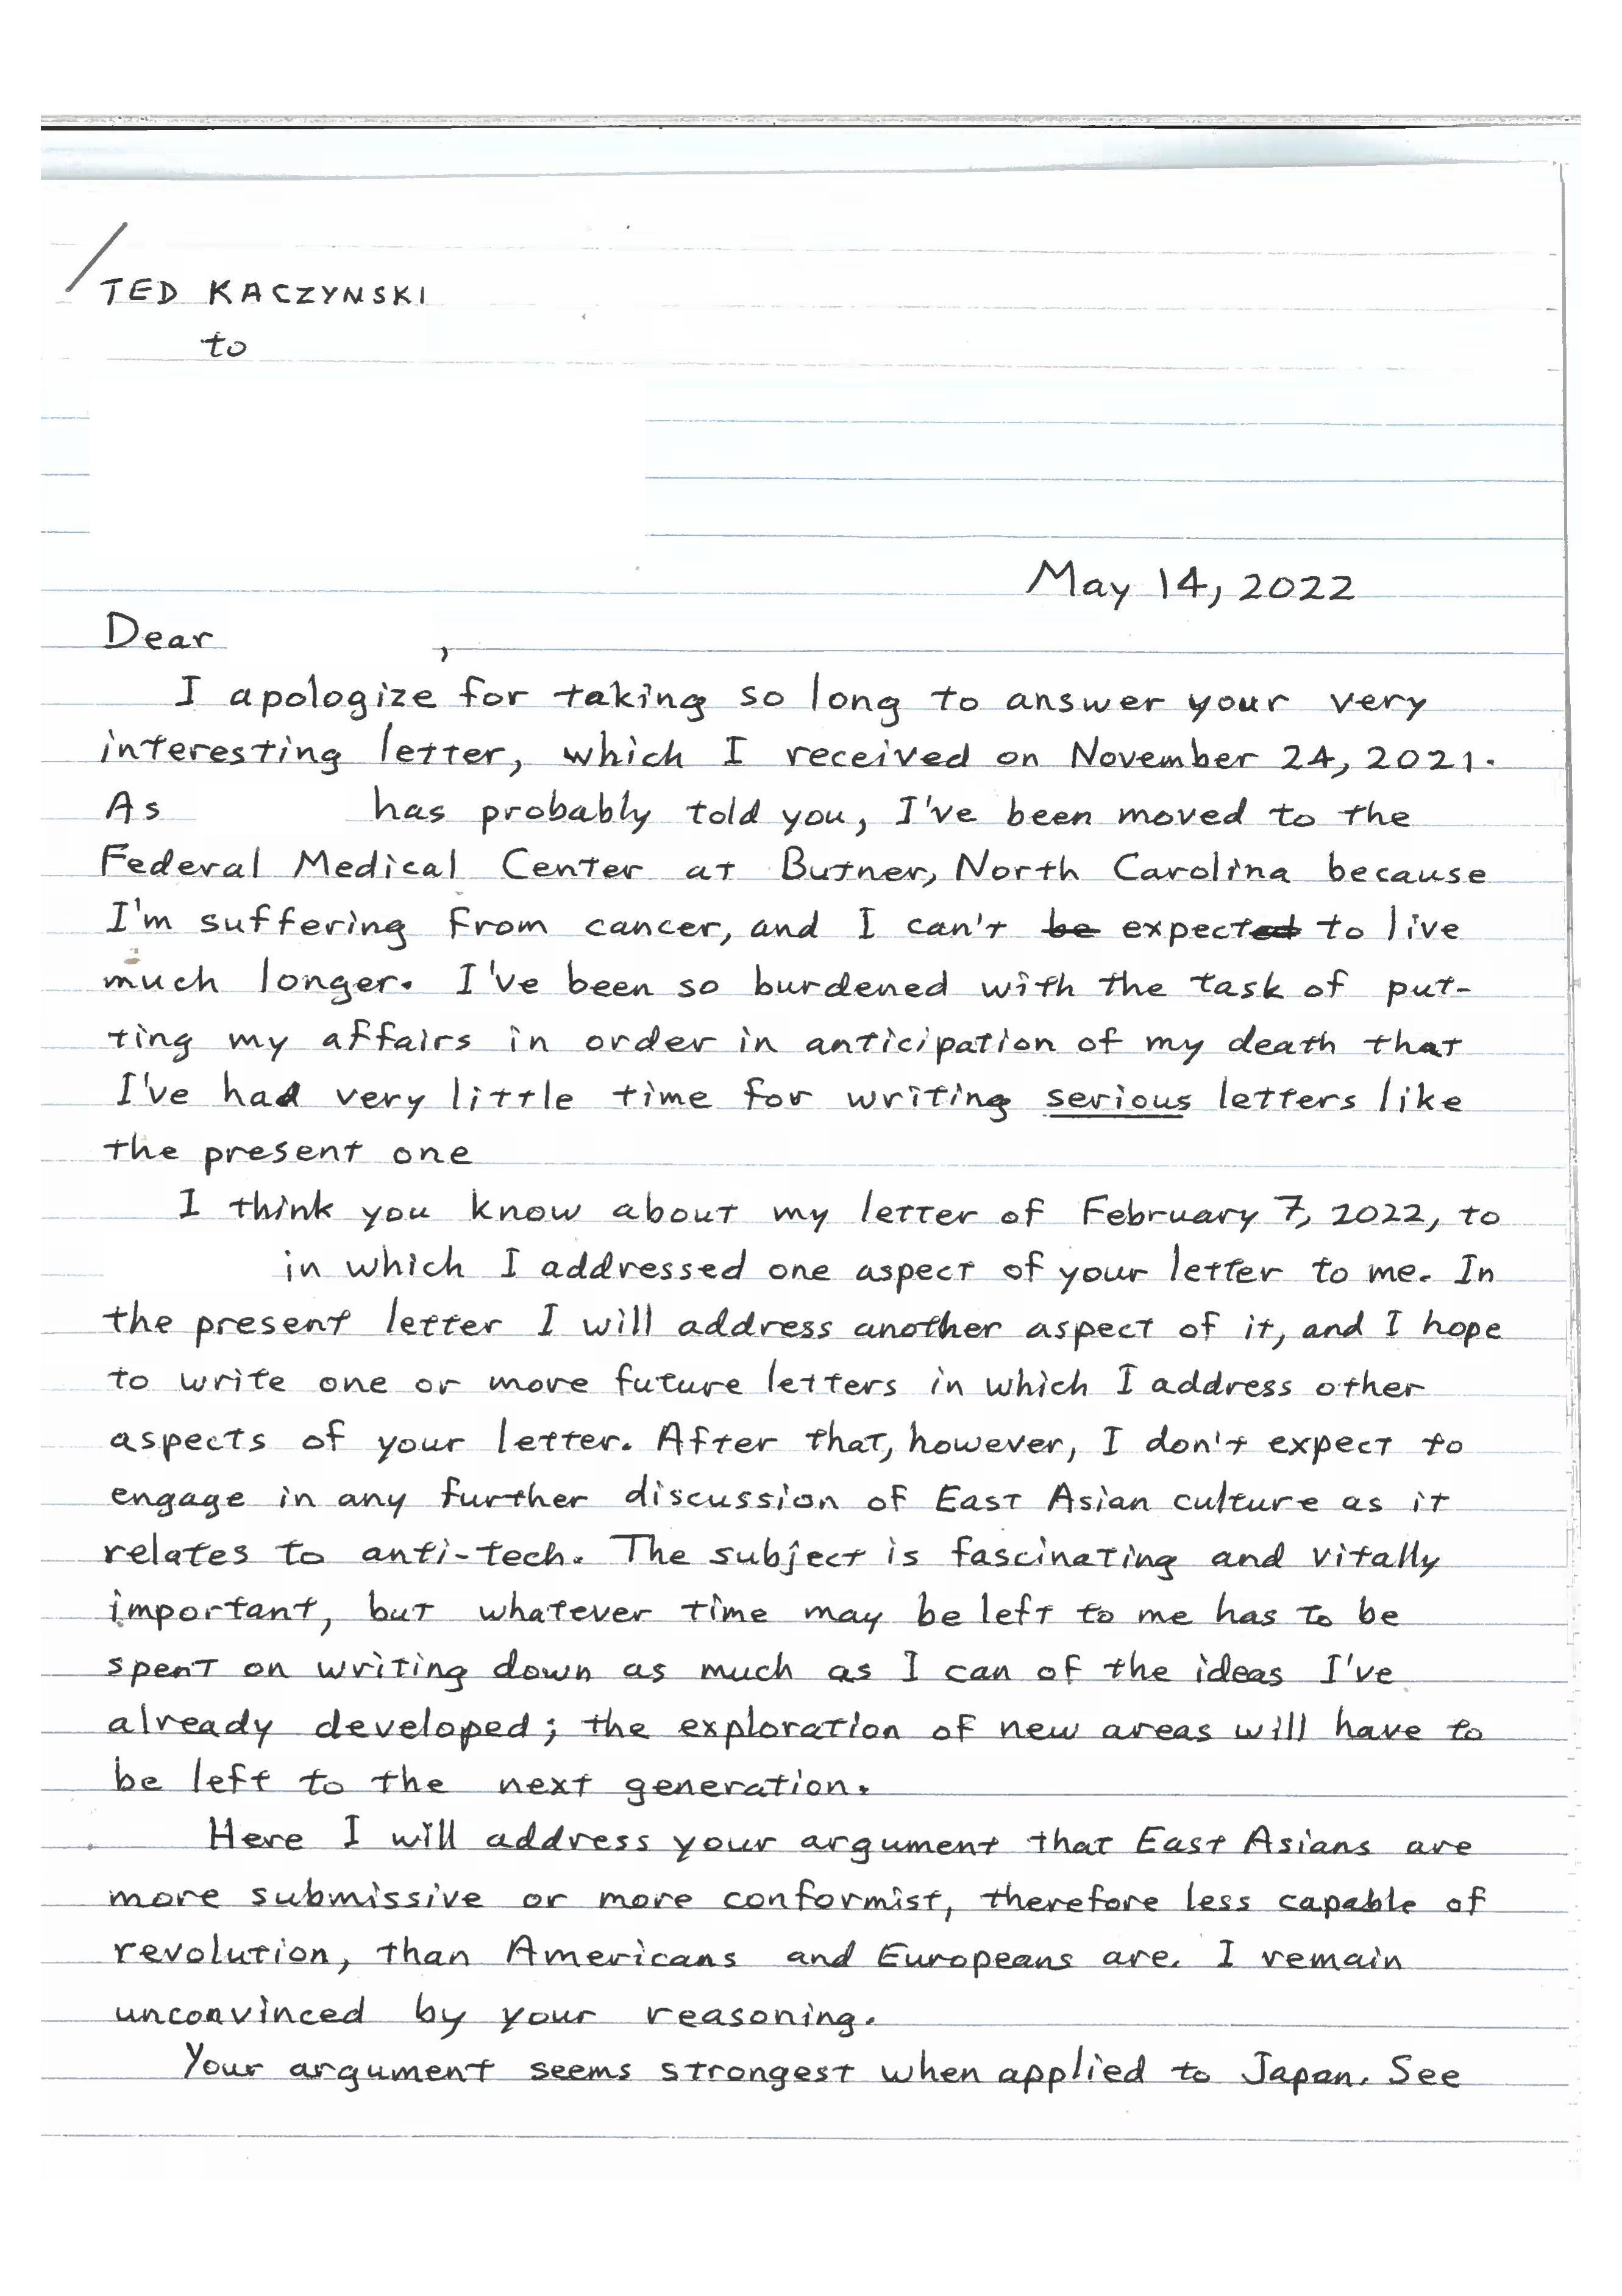 TED KACZYNSKI
to
May 14, 2022
Dear ,
I apologize for taking so long to answer your very
interesting letter, which I received on November 24, 2021.
As has probably told you, I've been moved to the
Federal Medical Center at Butner, North Carolina because
I'm suffering from cancer, and I can't be expected to live
much longer. I've been so burdened with the task of put-
ting my affairs in order in anticipation of my death that
I've had very little time for writing serious letters like
the present one
I think you know about my letter of February 7, 2022, to
in which I addressed one aspect of your letter to me. In
the present letter I will address another aspect of it, and I hope
to write one or more future letters in which I address other
aspects of your letter. After that, however, I don't expect to
engage in any further discussion of East Asian culture as it
relates to anti-tech. The subject is fascinating and vitally
important, but whatever time may be left to me has to be
spent on writing down as much as I can of the ideas I've
already developed; the exploration of new areas will have to
be left to the next generation.
Here I will address your argument that East Asians are
more submissive or more conformist, therefore less capable of
revolution, than Americans and Europeans are. I remain
unconvinced by your reasoning.
Your argument seems strongest when applied to Japan. See